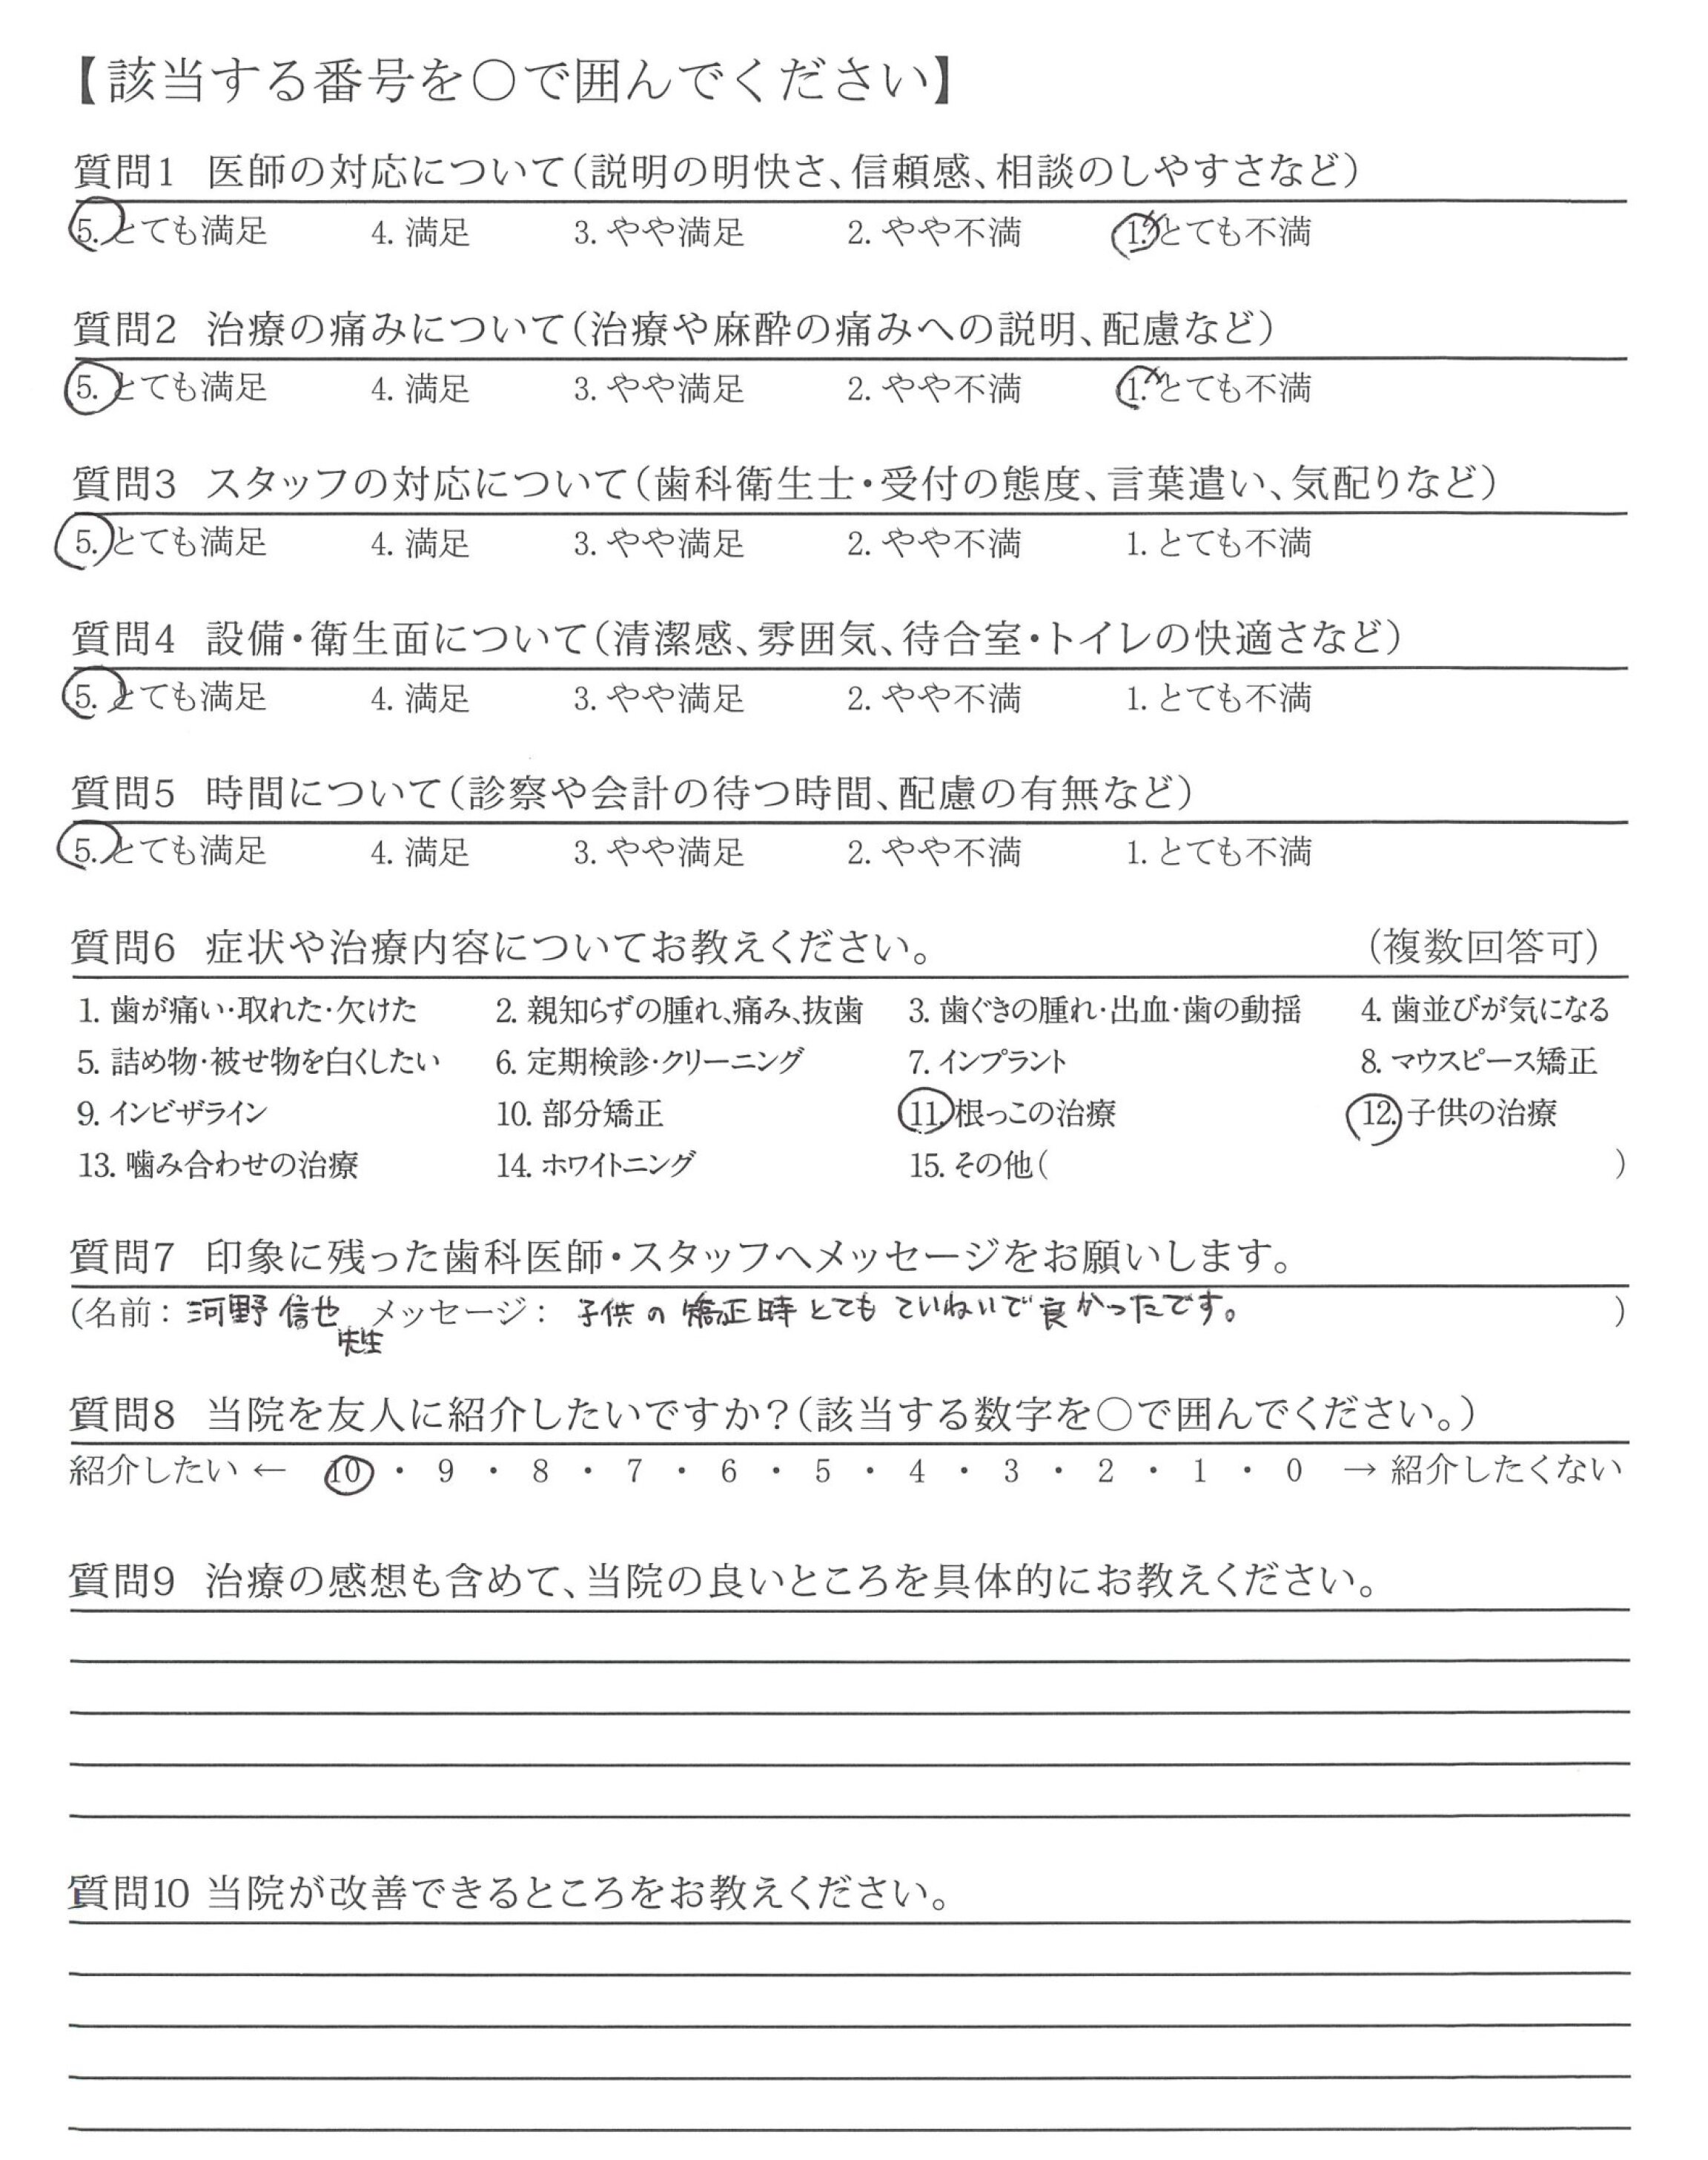 【該当する番号を○で囲んでください】
質問1 医師の対応について(説明の明快さ、信頼感、相談のしやすさなど)
5. とても満足 4. 満足 3. やや満足 2. やや不満 1. とても不満
質問2 治療の痛みについて(治療や麻酔の痛みへの説明、配慮など)
5. とても満足 4. 満足 3. やや満足 2. やや不満 1. とても不満
質問3 スタッフの対応について(歯科衛生士・受付の態度、言葉遣い、気配りなど)
5. とても満足 4. 満足 3. やや満足 2. やや不満 1. とても不満
質問4 設備・衛生面について(清潔感、雰囲気、待合室・トイレの快適さなど)
5. とても満足 4. 満足 3. やや満足 2. やや不満 1. とても不満
質問5 時間について(診察や会計の待つ時間、配慮の有無など)
5. とても満足 4. 満足 3. やや満足 2. やや不満 1. とても不満
質問6 症状や治療内容についてお教えください。 (複数回答可)
1. 歯が痛い・取れた・欠けた 2. 親知らずの腫れ、痛み、抜歯 3. 歯ぐきの腫れ・出血・歯の動揺 4. 歯並びが気になる
5. 詰め物・被せ物を白くしたい 6. 定期検診・クリーニング 7. インプラント 8. マウスピース矯正
9. インビザライン 10. 部分矯正 11. 根っこの治療 12. 子供の治療
13. 噛み合わせの治療 14. ホワイトニング 15. その他( )
質問7 印象に残った歯科医師・スタッフへメッセージをお願いします。
(名前: 河野 信也 メッセージ: 子供の矯正時とてもていねいで良かったです。 )
先生
質問8 当院を友人に紹介したいですか?(該当する数字を○で囲んでください。)
紹介したい ← 10 ・ 9 ・ 8 ・ 7 ・ 6 ・ 5 ・ 4 ・ 3 ・ 2 ・ 1 ・ 0 → 紹介したくない
質問9 治療の感想も含めて、当院の良いところを具体的にお教えください。
質問10 当院が改善できるところをお教えください。